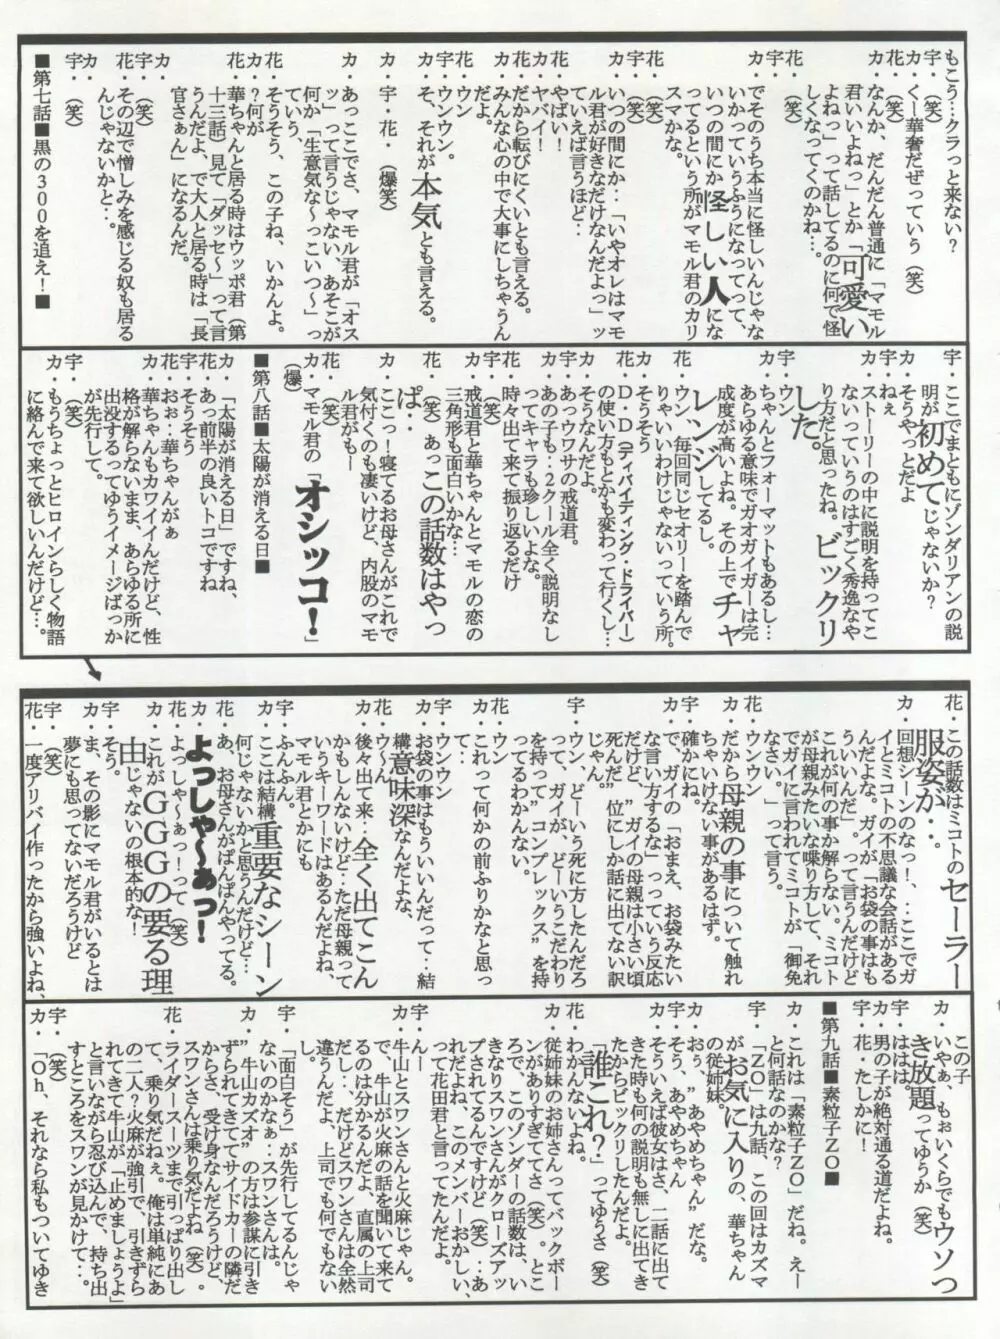 もこう…クラっと来ない?
宇・(笑)
カ・くー華奢だぜっていう(笑)
花・(笑)
カ・なんか、だんだん普通に「マモル
君いいよねっ」とか「可愛い
よねっ」って話してるのに何で怪
しくなってくのかね…。
花・(笑)
宇・
カ・でそのうち本当に怪しいんじゃな
いかっていうふうになってって、
いつの間にか怪しい人にな
ってるという所がマモル君のカリ
スマかな。
花・(笑)
宇・(笑)
カ・いつの間にか‥「いやオレはマモ
ル君が好きなだけなんだよっ」ッ
ていえば言うほど‥
花・やばい!
カ・ヤバイ!
花・だから転びにくいとも言える。
カ・みんな心の中で大事にしちゃうん
だよ。
花・ウン
宇・ウンウン。
カ・そ、それが本気とも言える。
宇・花・(爆笑)
カ・あっここでさ、マモル君が「オス
ッ」って言うじゃない、あそこが
何か「生意気な〜っこいつ〜」っ
ていう、
花・そうそう、この子ね、いかんよ。
カ・?何が
花・華ちゃんと居る時はウッポ君(第
十三話)見て「ダッセ〜」って言
うんだよ、で大人と居る時は「長
官さぁん」になるんだ。
カ・
宇・(笑)
花・その辺で憎しみを感じる奴も居る
んじゃないかと‥。
カ・
宇・(笑)
■第七話■黒の300を追え!■
宇・ここでまともにゾンダリアンの説
明が初めてじゃないか?
カ・そうやっとだよ
宇・ねぇ
カ・ストーリーの中に説明を持ってこ
ないっていうのはすごく秀逸なや
り方だと思ったね。ビックリ
した。
宇・ウン
カ・ちゃんとフォーマットもあるし…
あらゆる意味でガオガイガーは完
成度が高いよね。その上でチャ
レンジしてるし。
花・ウン、毎回同じセオリーを踏んで
りゃいいわけじゃないっていう所。
カ・そうそう
花・D・D(ディバイディング・ドライバー)
の使い方もとかも変わって行くし…
カ・そうなんだよ。
宇・あっウワサの戒道君。
カ・あの子も‥2クール全く説明なし
ってキャラも珍しいよな。
花・時々出て来て振り返るだけ
宇・(笑)
カ・戒道君と華ちゃんとマモルの恋の
三角形も面白いかな…
花・(笑)あっこの話数はやっ
ぱ‥
カ・ここっ!寝てるお母さんがこれで
気付くのも凄いけど、内股のマモ
ル君がもー
花・(笑)
カ・マモル君の「オシッコ!」
(爆)
■第八話■太陽が消える日■
カ・「太陽が消える日」ですね、
花・あっ前半の良いトコですね
カ・そうそう
花・おぉ‥華ちゃんがぁ
カ・華ちゃんもカワイイんだけど、性
格が解らないまま、あらゆる所に
出没するってゆうイメージばっか
が先行して。
宇・(笑)
カ・もうちょっとヒロインらしく物語
に絡んで来て欲しいんだけど…。
花・この話数はミコトのセーラー
服姿が‥。
カ・回想シーンのなっ!、‥ここでガ
イとミコトの不思議な会話がある
んだよな。ガイが「お袋の事はも
ういいんだ」。って言うんだけど
これが何の事か解らない。ミコト
が母親みたいな喋り方して、それ
でガイに言われてミコトが「御免
なさい。」って言う。
花・だから母親の事について触れ
ちゃいけない事があるはず。
宇・確かにね。
カ・で、ガイの「おまえ、お袋みたい
な言い方するな」っっていう反応
だけど、"ガイの母親は小さい頃
死んだ"位にしか話に出てない訳
じゃん。
宇・ウン、どーいう死に方したんだろ
って、ガイが、どーいうこだわり
を持って"コンプレックス"を持
ってるわかんない。
花・ウン
カ・これって何かの前ふりかなと思っ
て‥
宇・ウンウン
カ・お袋の事はもういいんだって‥結
構意味深なんだよな、
花・ウ〜ん
カ・後々出て来‥全く出てこん
かもしんないけど‥ただ母親って
いうキーワードはあるんだよね、
マモル君とかにも
宇・ふんふん。
カ・ここは結構重要なシーン
何じゃないかと思うんだけど…
花・あ、お母さんがぱんぱんやってる。
カ・よっしゃ〜あっ!
花・よっしゃ〜ぁっ!って(笑)
カ・これがGGGの要る理
由じゃないの根本的な!
宇・そう。
カ・ま、その影にマモル君がいるとは
夢にも思ってないだろうけど
宇・(笑)
花・一度アリバイ作ったから強いよね、
この子
カ・いやぁ、もぉいくらでもウソつ
き放題ってゆうか(笑)
宇・ははは。
カ・男の子が絶対通る道だよね。
宇・花・たしかに!
■第九話■素粒子ZO■
カ・これは「素粒子ZO」だね。えー
と何話なのかな?
宇・「ZO」は九話、この回はカズマ
がお気に入りの、華ちゃん
の従姉妹。
カ・おぅ、"あやめちゃん"だな。
宇・そう、あやめちゃん
カ・そういえば彼女はさ、二話に出て
きた時も何の説明も無しに出てき
たからビックリしたんだよ。
「誰これ?」ってゆうさ(笑)
花・わかんないよね。
カ・従姉妹のお姉さんってバックボー
ンがありすぎててさ(笑)。とこ
ろで、このゾンダーの話数は、い
きなりスワンさんがクローズアッ
プされてるんですけど(笑)‥あ
れだよね、このメンバーおかしい、
って花田君と言ってたんだよ。
宇・んー
カ・牛山とスワンさんと火麻じゃん。
で、牛山が火麻の話を聞いて来て
るのは分かるんだよ、直属の上司
だし‥、だけどスワンさんは全然
違うんだよ。上司でも何でもない
し。
宇・「面白そう」が先行してるんじゃ
ないのかなぁ‥スワンさんは。
カ・"牛山カズオ"の方は参謀に引き
ずられてきててサイドカーの隣だ
からさ、受け身なんだろうけど、
スワンさんは乗り気だよね(笑)。
花・ライダースーツまで引っぱり出し
て、乗り気だねぇ。俺は単純にあ
の二人?火麻が強引で、引きずら
れてきて牛山が「止めましょうよ」
と言いながら忍び込んで、持ち出
すところをスワンが見かけて‥。
宇・(笑)
カ・「Oh、それなら私もついてゆき